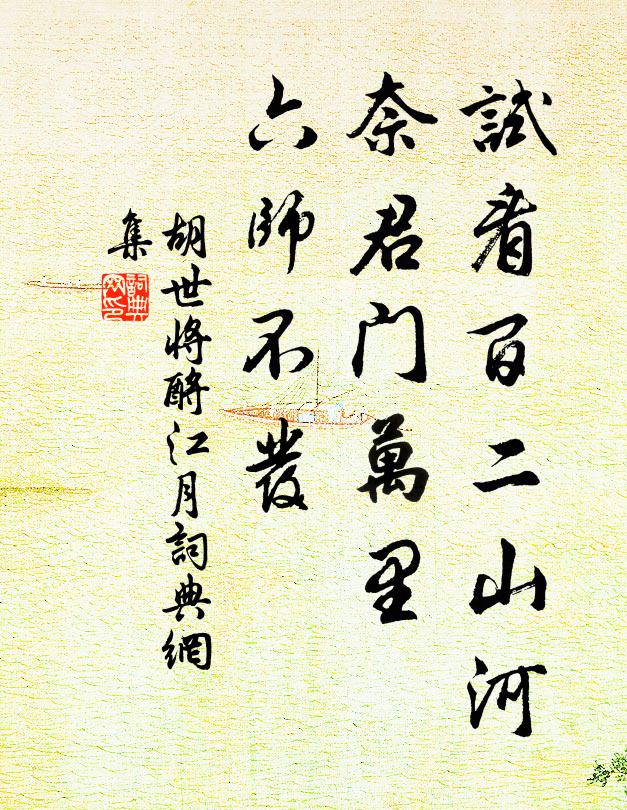 試看百二山河
奈君門萬里
六師不發
胡世將酹江月詞典網
集
詞典
網印